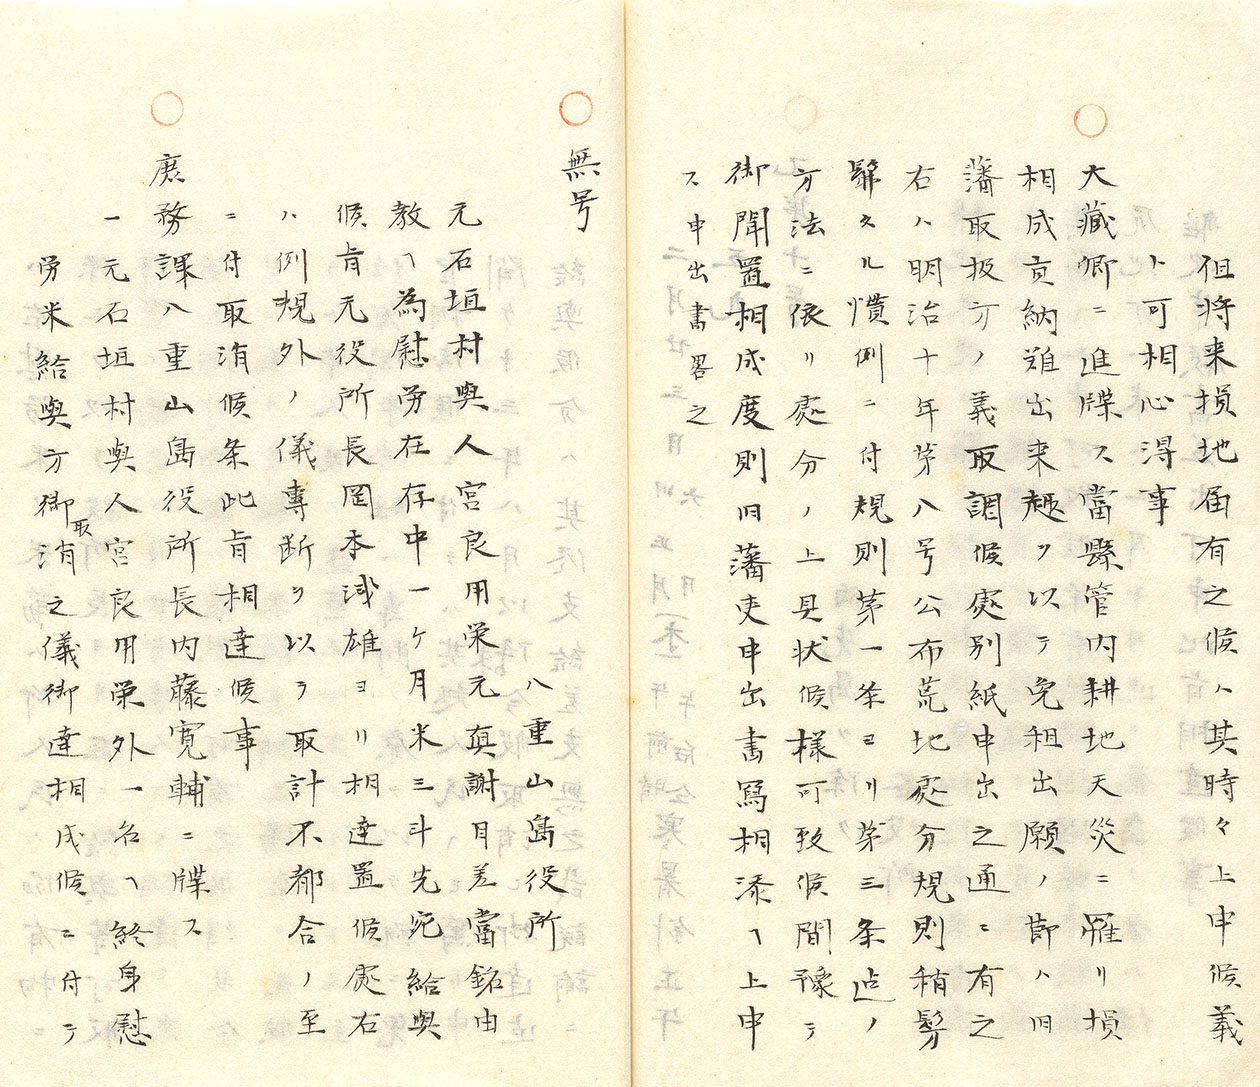 但将来損地届有之候ハ其時々上申候義
ト可相心得事
大藏卿ニ進牒ス當縣管内耕地天災ニ罹リ損
相成貢納難出来趣ヲ以テ免租出願ノ節ハ旧
藩取扱方ノ義取調候處別紙申出之通ニ有之
右ハ明治十年第八号公布荒地處分規則稍髣
髴タル慣例ニ付規則第一条ヨリ第三条迠ノ
方法ニ依リ處分ノ上具状候様可致候間豫テ
御聞置相成度則旧藩吏申出書寫相添ヘ上申
ス申出書畧之
無号
八重山島役所
元石垣村與人宮良用栄元真謝目差當銘由
教ヘ為慰労在存中一ケ月米三斗先宛給與
候旨元役所長岡本浅雄ヨリ相達置候處右
ハ例規外ノ儀專断ヲ以テ取計不都合ノ至
ニ付取消候条此旨相達候事
庶務課八重山島役所長内藤寛輔ニ牒ス
一元石垣村與人宮良用栄外一名ヘ終身慰
労米給與方御取消之儀御達相成候ニ付テ